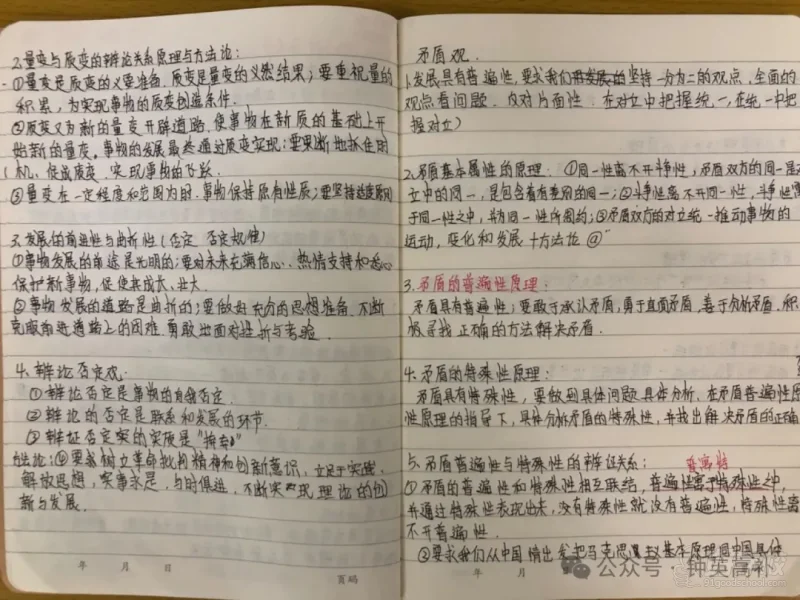 2.量变与质变的辩论关系原理与方法论:
①量变是质变的必要准备.质变是量变的必然结果;要重视量的
积累,为实现事物的质变创造条件.
②质变又为新的量变开辟道路.使事物在新质的基础上开
始新的量变,事物的发展最终通过质变实现:要果断地抓住时
机,促成质变,实现事物的飞跃.
③量变在一定程度和范围内时.事物保持原有性质;要坚持适度原则
3.发展的前进性与曲折性(否定 否定规律)
①事物发展的前途是光明的;要对未来充满信心、热情支持和悉心
保护新事物,促使其成长、壮大.
②事物发展的道路是曲折的;要做好充分的思想准备.不断
克服前进道路上的困难.勇敢地面对挫折与考验.
4.辩论否定观.
①辩论否定是事物的自我否定.
②辩论的否定是联系和发展的环节.
③辩证否定实的实质是"扬弃"
方法论:①要求树立革命批判精神和创新意识,立足于实践.
解放思想,实事求是,与时俱进,不断实现理论的创
新与发展.
年 月 日
页码
矛盾观.
1.发展具有普遍性,要求我们坚持一分为二的观点,全面的
观点看问题.反对片面性.在对立中把握统一,在统一中把
握对立)
2.矛盾基本属性的原理:①同一性离不开斗争性,矛盾双方的同一是对
立中的同一,是包含着有差别的同一;②斗争性离不开同一性,斗争性寓
于同一性之中,并为同一性所制约;③矛盾双方的对立统一推动事物的
运动,变化和发展 十方法论@"
3.矛盾的普遍性原理:
矛盾具有普遍性;要敢于承认矛盾,勇于直面矛盾,善于分析矛盾.积
极寻找正确的方法解决矛盾.
4.矛盾的特殊性原理:
矛盾具有特殊性,要做到具体问题具体分析.在矛盾普遍性原
性原理的指导下,具体分析矛盾的特殊性,并找出解决矛盾的正确
5.矛盾普遍性与特殊性的辩证关系:
①矛盾的普遍性和特殊性相互联结,普遍性寓于特殊性之中,
并通过特殊性表现出来,没有特殊性就没有普遍性,特殊性离
不开普遍性.
②要求我们从中国情出发把马克思主义基本原理同中国具体
年 月
公众号·钟英高补
91goodschool.com